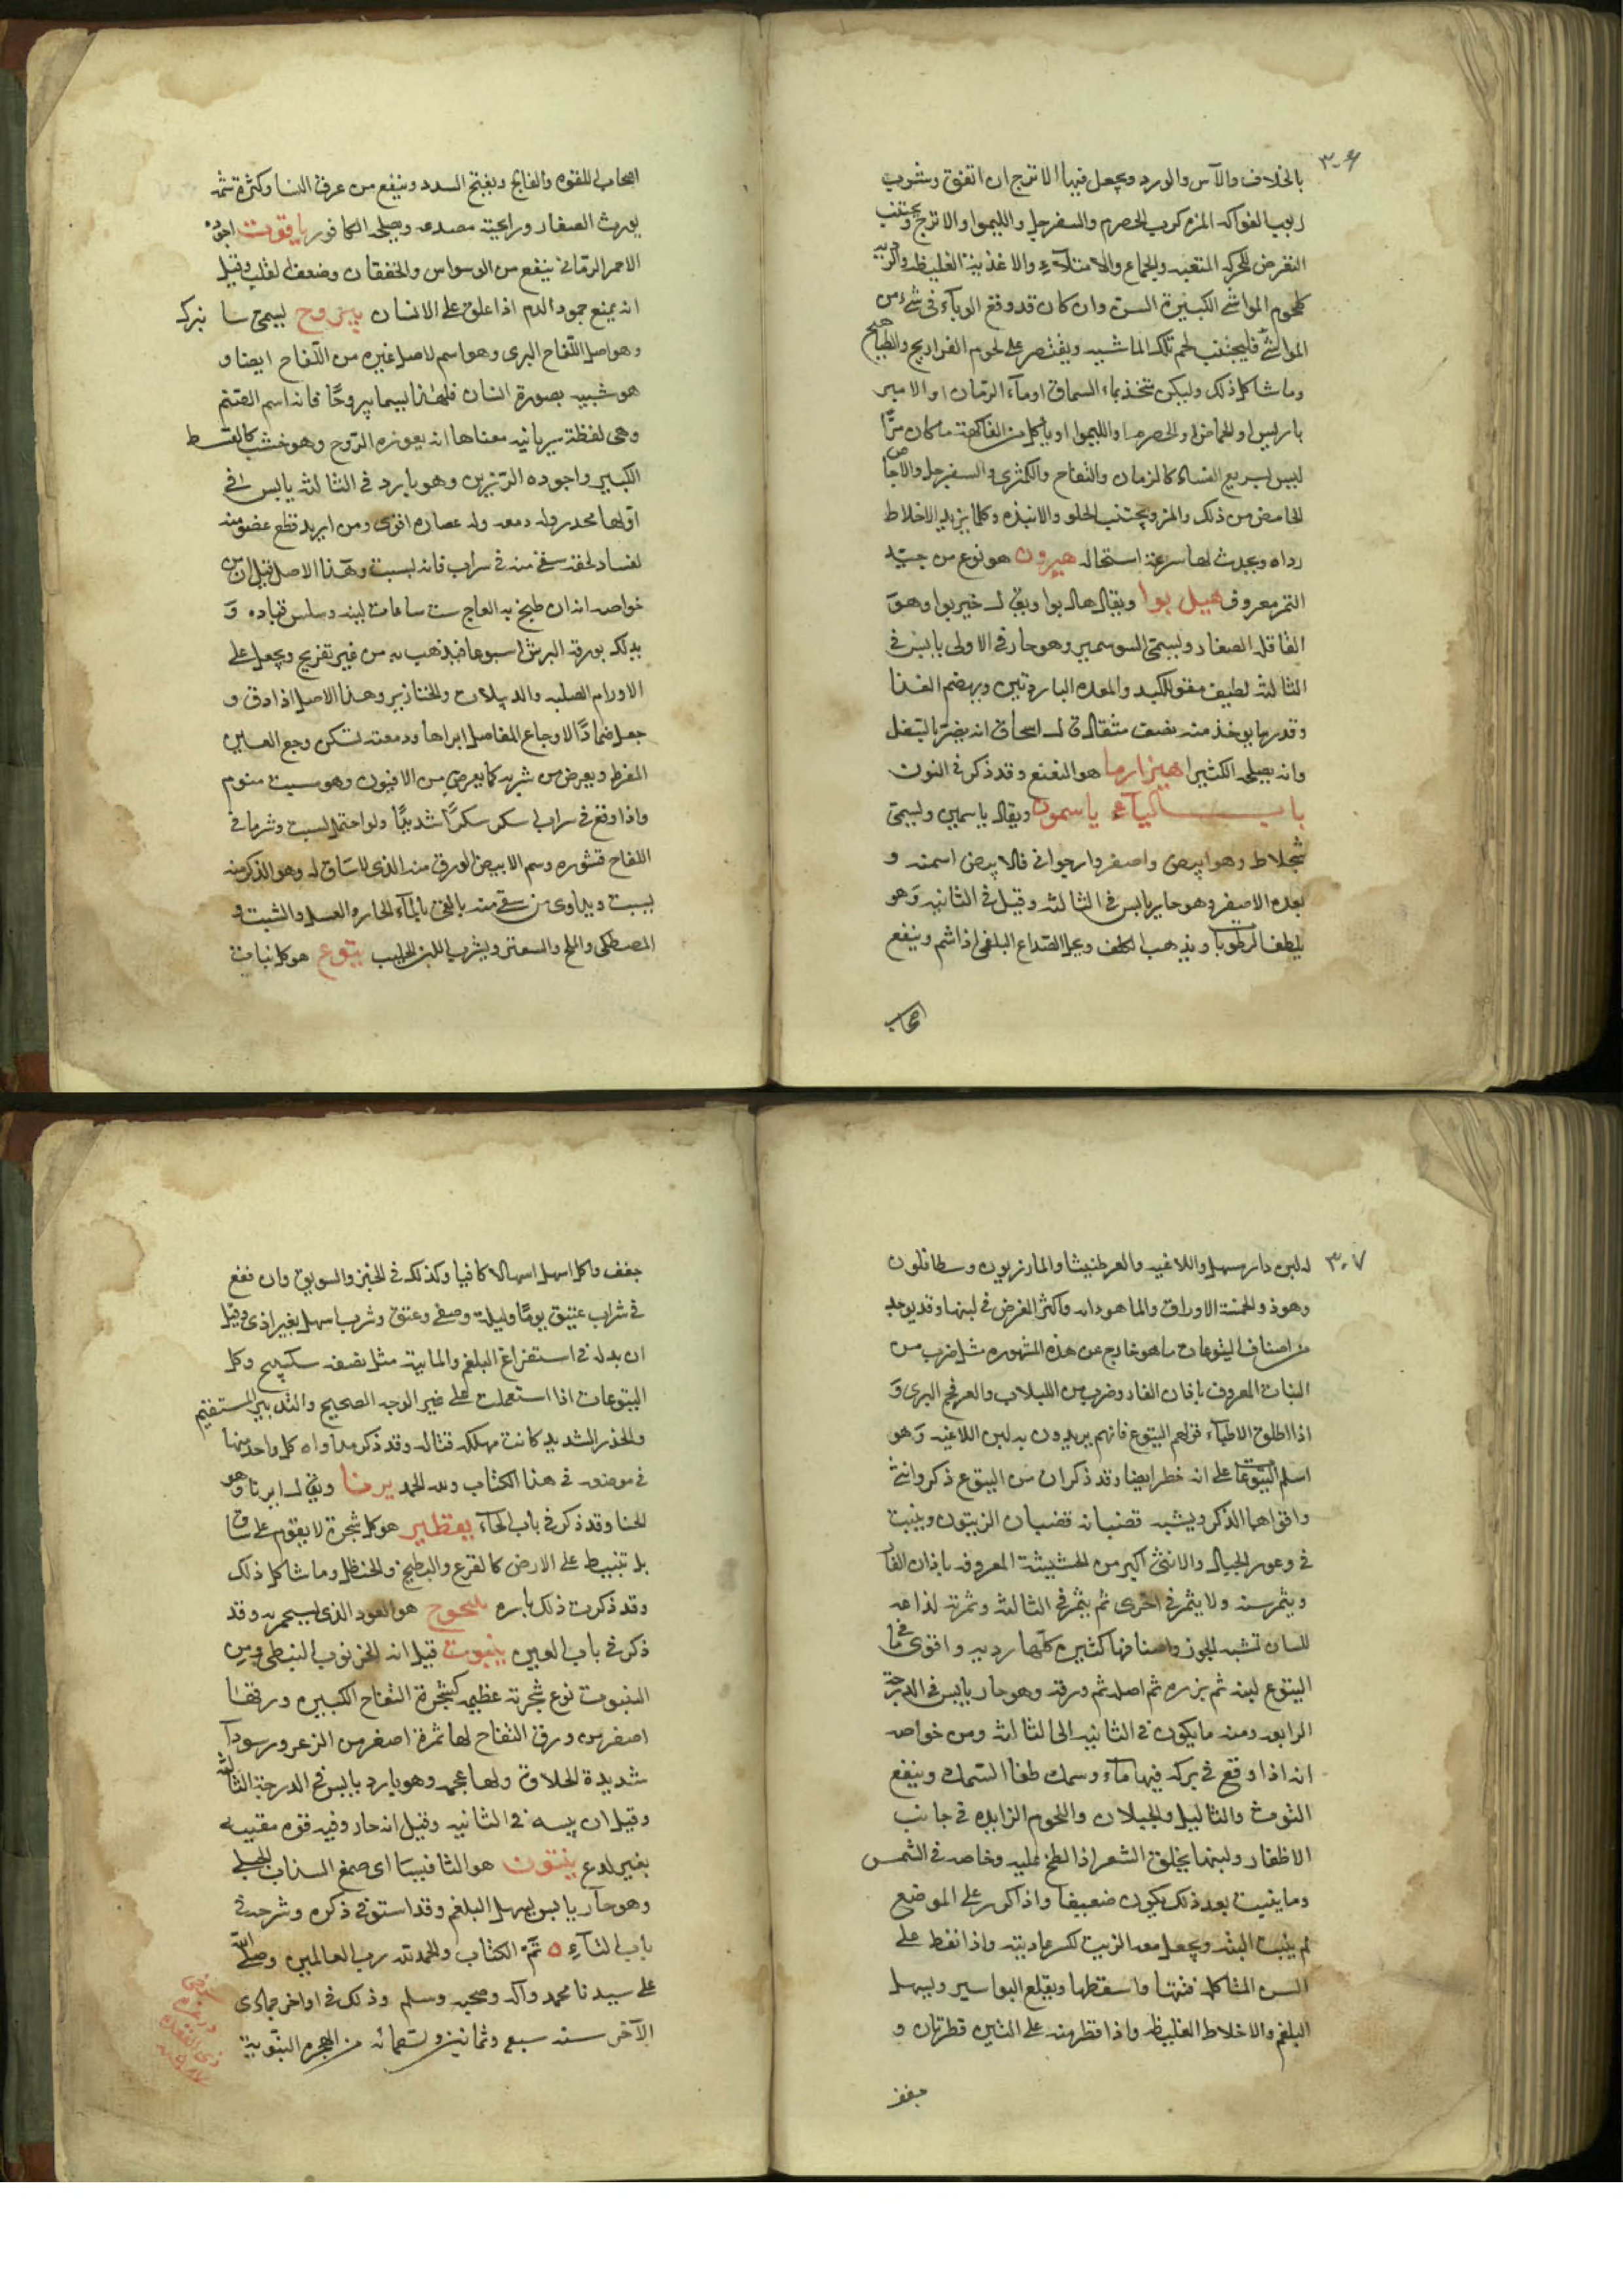 ٣٠٦
بالخلاف والآس والورد ويجعل فيها الاترج ان اتفق وشرب
ربوب الفواكه المزه كرب الحصرم والسفرجل والليموا والاترج ويجتنب
التعرض للحركه المتعبه والجماع والامتلآء والاغذيه الغليظه والرديه
كلحوم المواشي الكبيرة السن وان كان قد وقع الوبآء في شئ من
المواشي فليجتنب لحم تلك الماشيه ويقتصر على لحوم الفراريج والطياهيج
وما شاكل ذلك وليكن متخذ بماء السماق او مآء الرمان او الامير
باريس او الحماض او الحصرم او الليموا او ياكل من الفاكهة ما كان مزّا
ليس بسريع الفساد كالرمان والتفاح والكمثرى والسفرجل والاجاص
الحامض من ذلك والمز ويجتنب الحلو والانبذه وكلما يزيد الاخلاط
رداه ويحدث لها سرعة استحاله هيرون هو نوع من جيّد
التمر معروف هيل بوا ويقال هال بوا ويق له خير بوا وهو
القاقله الصغار ويسمى السوسمير وهو حار في الاولى يابس في
الثالثه لطيف مقو للكبد والمعده الباردتين ويهضم الغذا
وقدر ما يوخذ منه نصف مثقال ق له اسحاق انه يضر بالثفل
وانه يصلحه الكثيرا هيزارما هو النعنع وقد ذكر في النون
باب اليآء ياسمون ويقال ياسمين ويسمى
سجلاط وهو ابيض واصفر وارجواني فالابيض اسمنه و
بعده الاصفر وهو حار يابس في الثالثه وقيل في الثانيه وهو
يلطف الرطوبات ويذهب الكلف ويحل الصداع البلغمي اذا شم وينفع
اصحاب
اصحاب اللقوه والفالج ويفتح السدد وينفع من عرق النسا وكثرة شمه
يورث الصفار ورايحته مصدعه ويصلحه الكافور ياقوت اجوده
الاحمر الرماني ينفع من الوسواس والخفقان وضعف القلب وقيل
انه يمنع جمود الدم اذا علق على الانسان يبروح ليسمى سا بيزك
وهو اصل اللفاح البرى وهو اسم لاصل غيره من اللفاح ايضا و
هو شبيه بصورة انسان فلهذا يسما يبروحًا فانه اسم الصنم
وهي لفظة سريانيه معناها انه يعوزه الروح وهو خشب كالقسط
الكبير واجوده الرزين وهو بارد في الثالثه يابس في
اولها مخدر وله دمعه وله عصاره اقوى ومن اريد قطع عضو منه
لفساد لحقه سقي منه في شراب فانه يسبت وهذا الاصل قيل ان من
خواصه انه ان طبخ به العاج ست ساعات لينه وسلس قياده و
يدلك بورقه البرش اسبوعا فيذهب به من غير تقريح ويجعل على
الاورام الصلبه والدبيلات والخنازير وهذا الاصل اذا دق و
جعل ضمادًا لاوجاع المفاصل ابراها ودمعته تسكن وجع العين
المفرط ويعرض من شربه كما يعرض من الافيون وهو مسبت منوم
واذا وقع في شراب اسكر سكرًا شديدًا ولو احتمل لسبت وشرما في
اللفاح قشوره وسم الابيض الورق منه الذى لا ساق له وهو الذكر منه
يسبت ويداوى من سقي منه بالقي بالمآء الحار والعسل والشبت و
المصطكي والملح والسعتر ويشرب اللبن الحليب يتوع هو كل نبات
٣٠٧
له لبن دار مسهل واللاغيه والعرطنيثا والمازريون وسطاتلون
وهو ذو الخمسة الاوراق والماهودانه وآكثر الغرض في لبنها وقد يوجد
من اصناف اليتوعات ما هو خارج عن هذه المشهوره مثل ضرب من
النبات المعروف باذان الفار وضرب من اللبلاب والعرفج البرى و
اذا اطلق الاطباء قولهم اليتوع فانهم يريدون به لبن اللاغيه وهو
اسلم اليتوعات على انه خطر ايضا وقد ذكر ان من اليتوع ذكر وانثى
واقواهما الذكر ويشبه قضبانه قضبان الزيتون وينبت
في وعور الجبال والانثى اكبر من الحشيشة المعروفه باذان الفار
ويثمر سنه ولا يثمر في اخرى ثم يثمر في الثالثه وثمرته لذاعه
للسان تشبه الجوز واصنافها كثيره كلها رديه واقوى ما في
اليتوع لبنه ثم بزره ثم اصله ثم ورقه وهو حار يابس في الدرجة
الرابعه ومنه ما يكون في الثانيه الى الثالثه ومن خواصه
انه اذا وقع في بركه فيها مآء وسمك طفا السمك وينفع
التوث والثاليل والخيلان واللحوم الزايده في جانب
الاظفار ولبنها يحلق الشعر اذا لطخ عليه وخاصه في الشمس
وما ينبت بعد ذلك يكون ضعيفا واذا كرر على الموضع
لم ينبت البته ويجعل معه الزيت لكسر عاديته واذا نقط على
السن المتاكله فتتها واسقطها ويقلع البواسير ويسهل
البلغم والاخلاط الغليظه واذا قطر منه على التين قطرتان و
جفف
جفف واكل اسهل اسهالا كافيا وكذلك في الخبز والسويق وان نقع
في شراب عتيق يومًا وليلة وصفي وعتق وشرب اسهل بغير اذى وقيل
ان بدله في استفراغ البلغم والمايية مثل نصفه سكبينج وكل
اليتوعات اذا استعملت على غير الوجه الصحيح والتدبير المستقيم
والحذر الشديد كانت مهلكه قتاله وقد ذكر مداواه كل واحد منها
في موضعه في هذا الكتاب ولله الحمد يرنا ويق له ايرنا وهو
الحنا وقد ذكر في باب الحآء يقطير هو كل شجرة لا يقوم على ساق
بل تنبسط على الارض كالقرع والبطيخ والحنظل وما شاكل ذلك
وقد ذكرت ذلك باسره يلنجوج هو العود الذى يتبخر به وقد
ذكر في باب العين ينبوت قيل انه الخرنوب النبطي ومن
الينبوت نوع شجرته عظيمه كشجرة التفاح الكبيره ورقها
اصغر من ورق التفاح لها ثمرة اصغر من الزعرور سودآ
شديدة الحلاوة ولها عجم وهو بارد يابس في الدرجة الثالثه
وقيل ان يبسه في الثانيه وقيل انه حار وفيه قوه مقييه
بغير لدع ينتون هو الثافيسا اى صمغ السذاب الجبلي
وهو حار يابس يسهل البلغم وقد استوفي ذكره وشرحه في
باب التآء ه تمّ الكتاب والحمد لله رب العالمين وصلى الله
على سيدنا محمد وآله وصحبه وسلم وذلك في اواخر جمادى
الآخر سنه سبع وثمانين وتسعمائه من الهجره النبوية